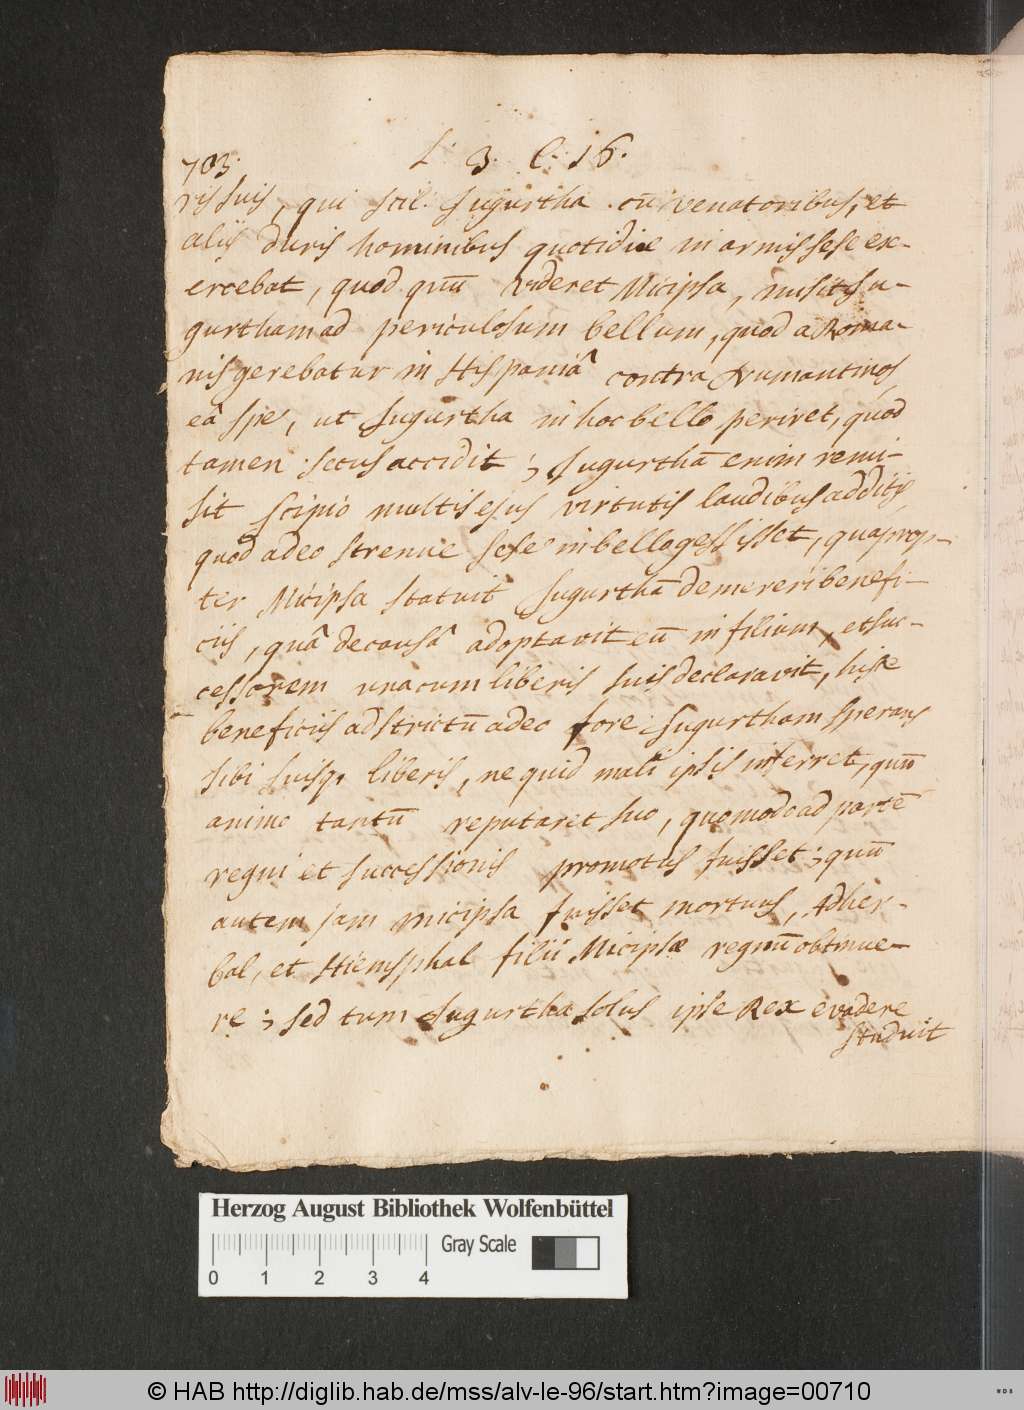 703. L. 3. C. 16.
ris suis, qui scil: Jugurtha cū venatoribus, et
aliis duris hominibus quotidie in armis sese ex-
ercebat, quod quū videret Micipsa, misit Ju-
gurtham ad periculosum bellum, quod a Roma-
nis gerebatur in Hispaniâ contra Numantinos,
eâ spe, ut Jugurtha in hoc bello periret, quod
tamen secus accidit; Jugurthā enim remi-
sit Scipio multis ejus virtutis laudibus additis,
quod adeo strenue sese in bello gessisset, quaprop-
ter Micipsa statuit Jugurthā demereri benefi-
ciis, quâ de causâ adoptavit eū in filium, et suc-
cessorem una cum liberis suis declaravit, hisce
beneficiis adstrictū adeo fore Jugurtham sperans
sibi suisq, liberis, ne quid mali ipsis inferret, quū
animo tantū reputaret suo, quomodo ad partē
regni et successionis promotus fuisset; quū
autem jam Micipsa fuisset mortuus, Adher-
bal, et Hiempshal filii Micipsæ regnū obtinue-
re; sed tum Jugurtha solus ipse Rex evadere
studuit
Herzog August Bibliothek Wolfenbüttel
Gray Scale
0 1 2 3 4
© HAB http://diglib.hab.de/mss/alv-le-96/start.htm?image=00710